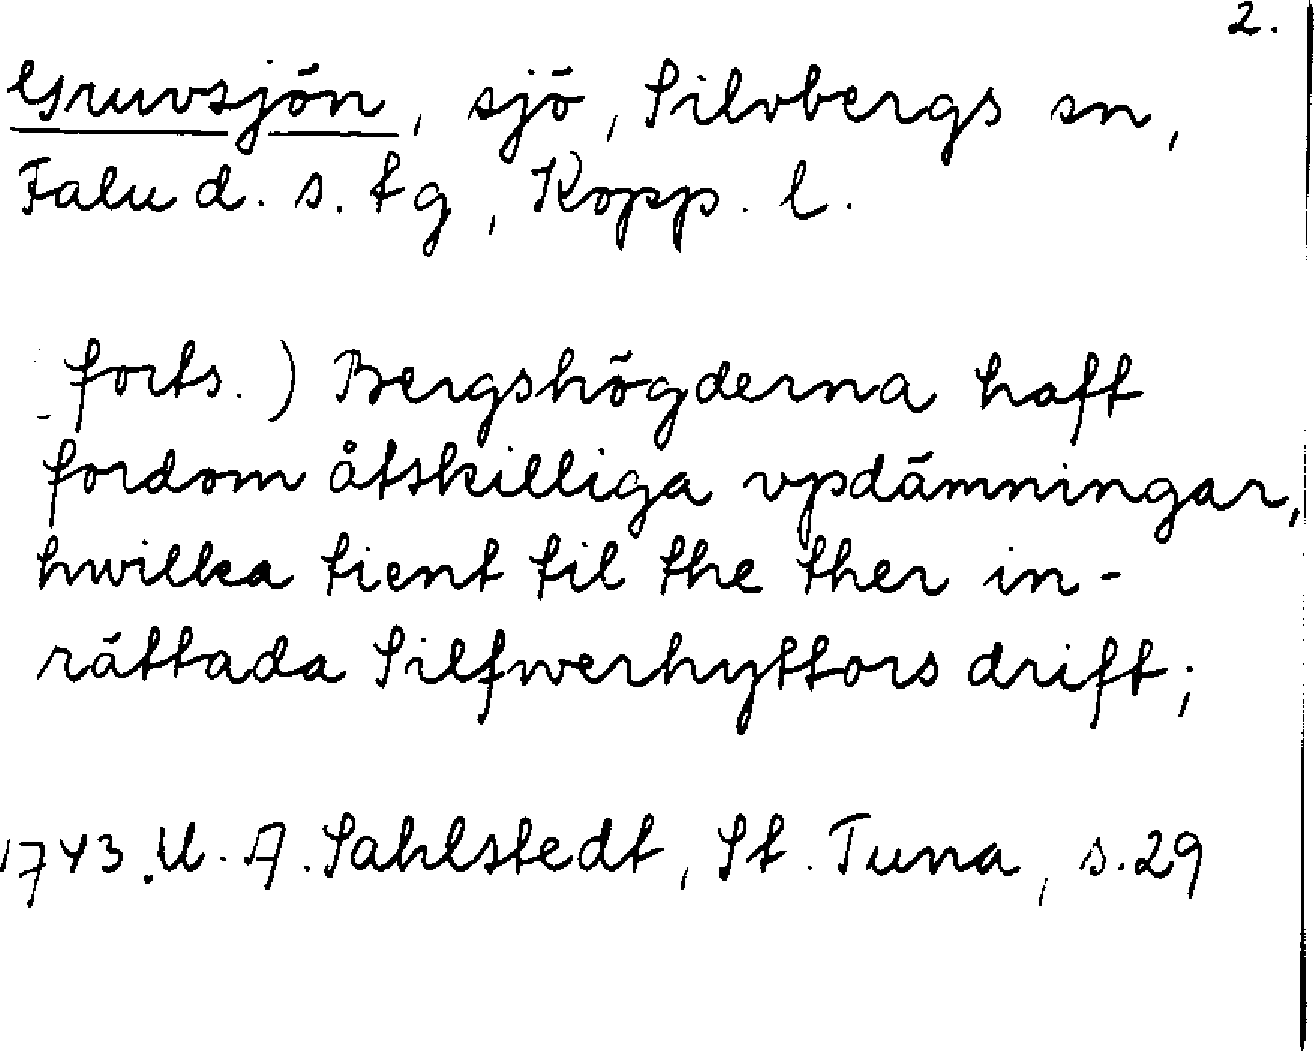 2.
Gruvsjön, sjö, Silvbergs sn,
Falu d. s. tg, Kopp. l.
forts.) Bergshögderna haft
fordom åtskilliga vpdämningar,
hwilka tient til the ther in-
rättada Silfwerhyttors drift;
1743. U. A. Sahlstedt, St. Tuna, s. 29